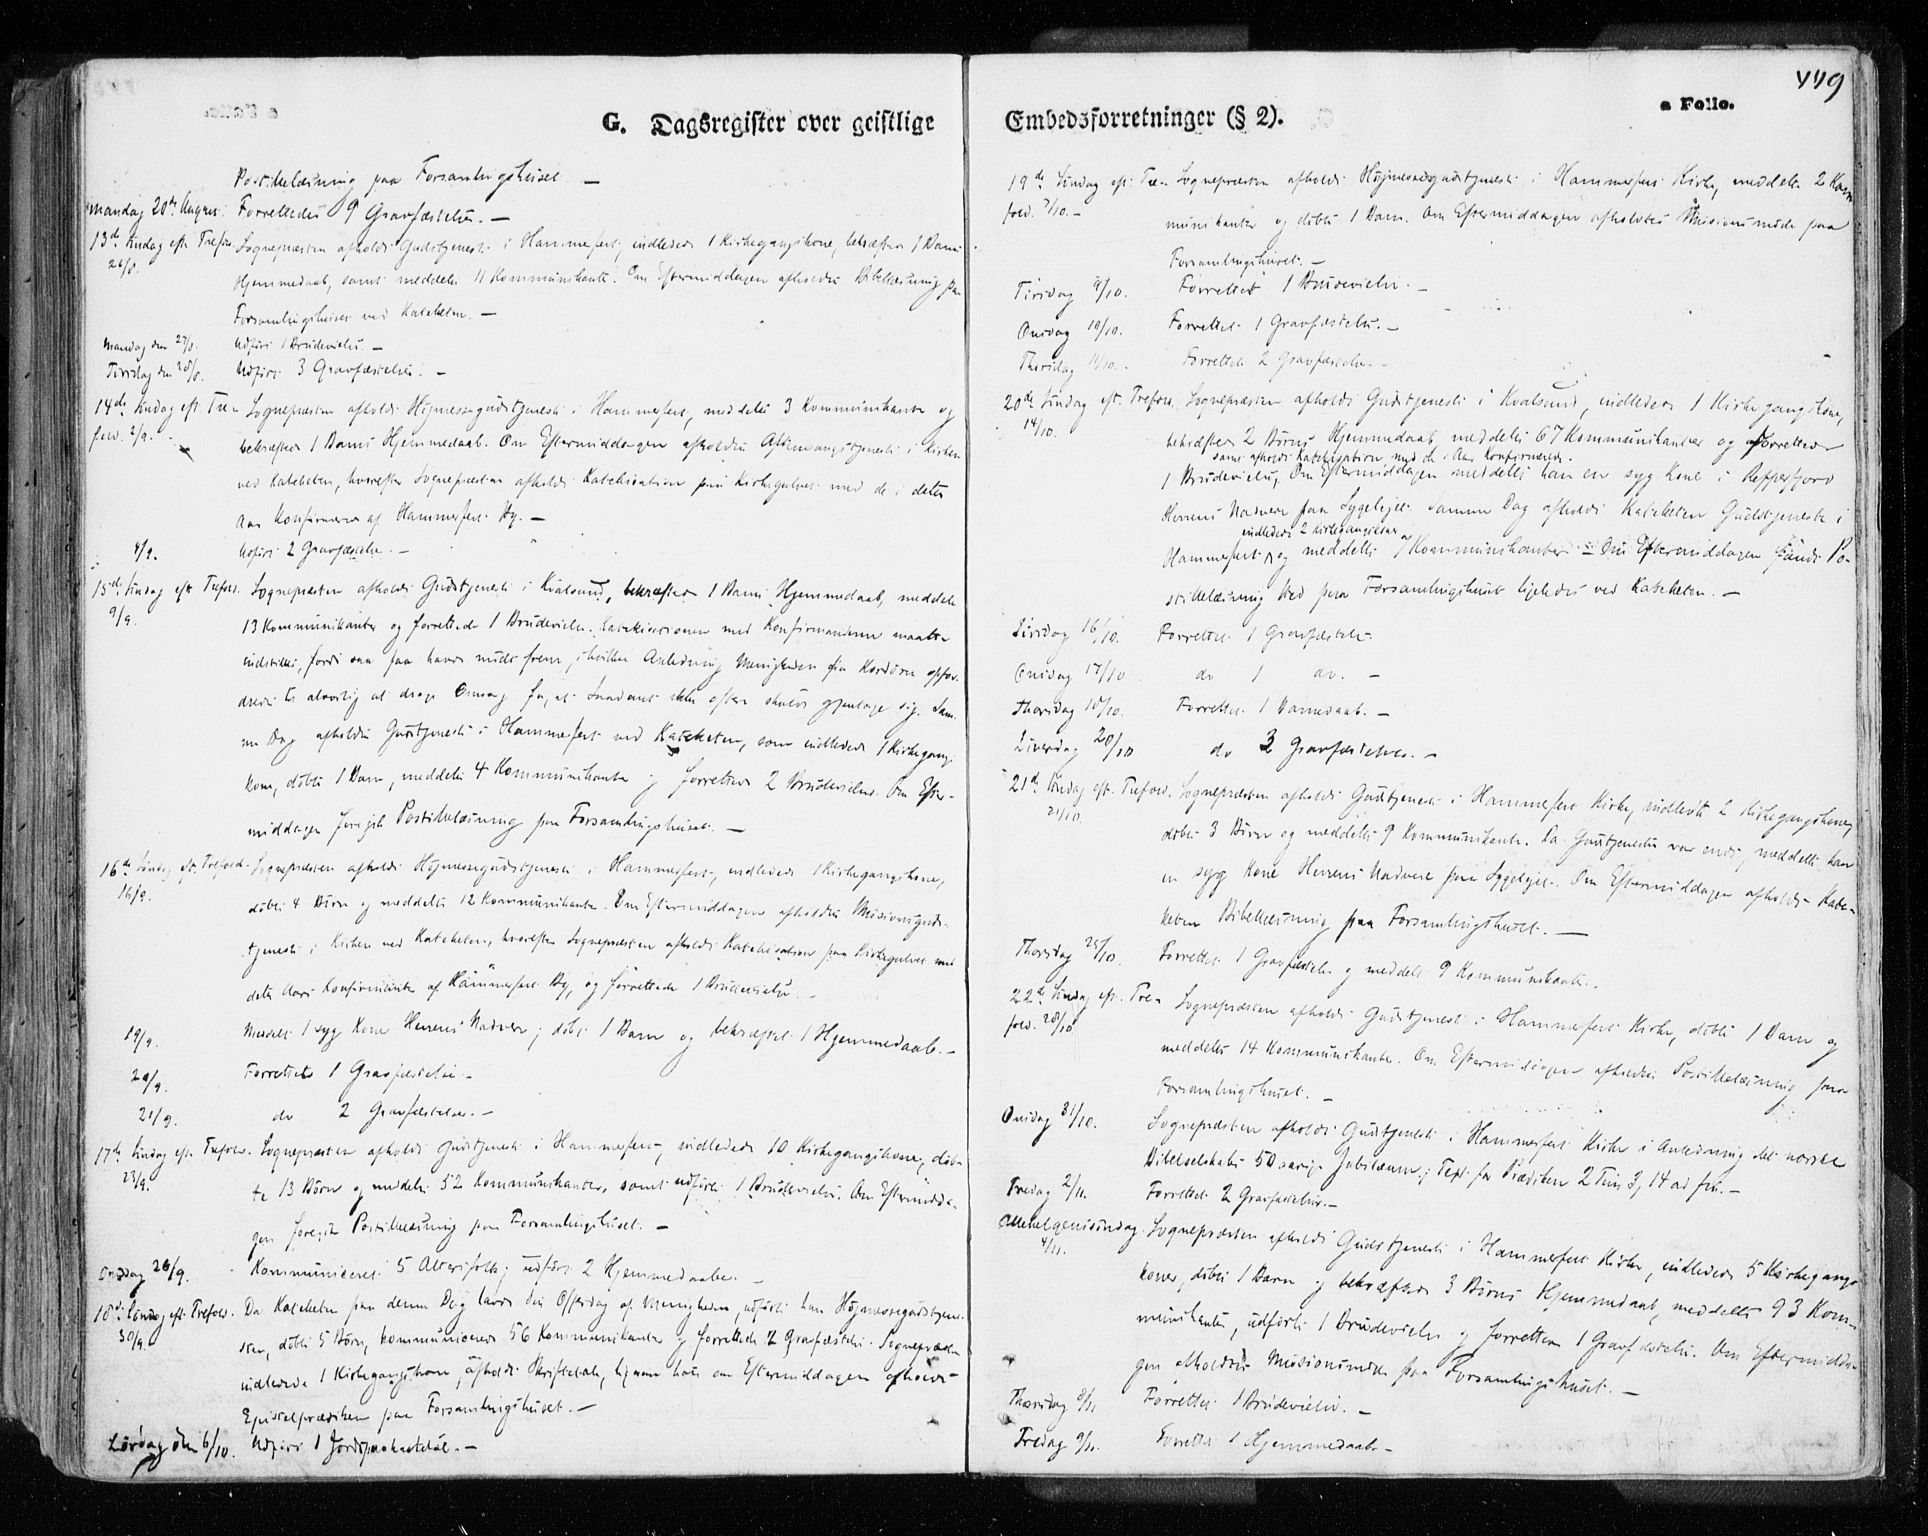 G. Dagsregister over geistlige
Postillelæsning paa Forsamlingshuset. —
Mandag 20de August. Forrettedes 9 Gravfæstelser. —
13de Søndag eft. Trefold. Sognepræsten afholdt Gudstjeneste i Hammerfest, indledede 1 Kirkegangskone, bekræftede 1 Barns
26/8. Hjemmedaab, samt meddelte 11 Kommunikanter. Om Eftermiddagen afholdtes Bibellæsning paa
Forsamlingshuset ved Kateketen. —
Mandag den 27/8. Udført 1 Brudevielse. —
Tirsdag den 28/8. Udført 3 Gravfæstelser. —
14de Søndag eft. Tre- Sognepræsten afholdt Højmessegudstjeneste i Hammerfest, meddelte 3 Kommunikanter og
fold. 2/9. bekræftede 1 Barns Hjemmedaab. Om Eftermiddagen afholdtes Aftensangstjeneste i Kirken
ved Kateketen, hvorefter Sognepræsten afholdt Katekisation paa Kirkegulvet med de i dette
Aar Konfirmerede af Hammerfest By. —
4/9. Udført 2 Gravfæstelser. —
15de Søndag eft. Trefold. Sognepræsten afholdt Gudstjeneste i Kvalsund, bekræftede 1 Barns Hjemmedaab, meddelte
9/9. 13 Kommunikanter og forrettede 1 Brudevielse. Katekisationen med Konfirmanderne maatte
indstilles, fordi saa faa havde mødt frem, i hvilken Anledning Menigheden fra Kordøren opfor-
dredes til alvorlig at drage Omsorg for, at Saadant ikke oftere skulde gjentage sig. Sam-
me Dag afholdtes Gudstjeneste i Hammerfest ved Kateketen, som indledede 1 Kirkegangs-
kone, døbte 1 Barn, meddelte 4 Kommunikanter og forrettede 2 Brudevielser. Om Efter-
middagen foregik Postillelæsning paa Forsamlingshuset. —
16de Søndag eft. Trefold. Sognepræsten afholdt Højmessegudstjeneste i Hammerfest, indledede 1 Kirkegangskone,
16/9. døbte 4 Børn og meddelte 12 Kommunikanter. Om Eftermiddagen afholdtes Missionsguds-
tjeneste i Kirken ved Kateketen, hvorefter Sognepræsten afholdt Katekisation paa Kirkegulvet med
dette Aars Konfirmanter af Hammerfest By, og forrettede 1 Brudevielse. —
19/9. Meddelt 1 syg Kone Herrens Nadvere; døbt 1 Barn og bekræftet 1 Hjemmedaab. —
20/9. Forrettet 1 Gravfæstelse. —
21/9. do 2 Gravfæstelser. —
17de Søndag eft. Trefold. Sognepræsten afholdt Gudstjeneste i Hammerfest, indledede 10 Kirkegangskoner, døb-
23/9. te 13 Børn og meddelte 52 Kommunikanter, samt udførte 1 Brudevielse. Om Eftermidda-
gen foregik Postillelæsning paa Forsamlingshuset. —
Onsdag 26/9. Kommuniceret 5 Altersfolk; udført 2 Hjemmedaabe. —
18de Søndag eft. Trefold. Da Kateketen paa denne Dag havde sin Offerdag af Menigheden, udførte han Højmessegudstjene-
30/9. sten, døbte 5 Børn, kommunicerede 56 Kommunikanter og forrettede 2 Gravfæstelser. Sognepræsten
indledede 1 Kirkegangskone, afholdt Skriftetale, ligesom han om Eftermiddagen afholdt
Epistelprædiken paa Forsamlingshuset. —
Lørdag den 6/10. Udført 1 Jordspaakastelse. —
449
a Folio.
Embedsforretninger (§ 2).
19de Søndag eft. Tre- Sognepræsten afholdt Højmessegudstjeneste i Hammerfest Kirke, meddelte 2 Kom-
fold. 7/10. — munikanter og døbte 1 Barn. Om Eftermiddagen afholdtes Missionsmøde paa
Forsamlingshuset. —
Tirsdag 9/10. Forrettet 1 Brudevielse. —
Onsdag 10/10. Forrettet 1 Gravfæstelse. —
Thorsdag 11/10. Forrettet 2 Gravfæstelser. —
20de Søndag eft. Trefold. Sognepræsten afholdt Gudstjeneste i Kvalsund, indledede 1 Kirkegangskone,
14/10. bekræftede 2 Børns Hjemmedaab, meddelte 67 Kommunikanter og forrettede
samt afholdt Katekisation med de i Aar Konfirmerede.
1 Brudevielse, Om Eftermiddagen meddelte han en syg Kone i Repparfjord
Herrens Nadvere paa Sygelejet. Samme Dag afholdt Kateketen Gudstjeneste i
indledede 2 Kirkegangskoner
Hammerfest og meddelte 7 Kommunikanter. — Om Eftermiddagen fandt Po-
stillelæsning Sted paa Forsamlingshuset ligeledes ved Kateketen. —
16/10. Forrettet 1 Gravfæstelse
Onsdag 17/10 do 1 do. —
Thorsdag 18/10. Forrettet 1 Barnedaab. —
Løverdag 20/10 do 3 Gravfæstelser. —
21de Søndag eft. Trefold. Sognepræsten afholdt Gudstjeneste i Hammerfest Kirke, indledte 2 Kirkegangskoner,
21/10. døbte 3 Børn og meddelte 9 Kommunikanter. Da Gudstjenesten var endt, meddelte han
en syg Kone Herrens Nadvere paa Sygelejet. Om Eftermiddagen afholdt Kate-
keten Bibellæsning paa Forsamlingshuset. —
Thorsdag 25/10. Forrettet 1 Gravfæstelse og meddelt 9 Kommunikanter.
22de Søndag eft. Tre- Sognepræsten afholdt Gudstjeneste i Hammerfest Kirke, døbte 1 Barn og
fold. 28/10 meddelte 14 Kommunikanter. Om Eftermiddagen afholdtes Postillelæsning paa
Forsamlingshuset. —
Onsdag 31/10. Sognepræsten afholdt Gudstjeneste i Hammerfest Kirke i Anledning det norske
Bibelselskabs 50 aarige Jubilæum; Text for Prædiken 2 Tim 3, 14 ad fin. —
Fredag 2/11. Forrettet 2 Gravfæstelser. —
Allehelgenssøndag Sognepræsten afholdt Gudstjeneste i Hammerfest Kirke, indledede 5 Kirkegangs-
4/11. koner, døbte 1 Barn og bekræftede 3 Børns Hjemmedaab, meddelte 93 Kom-
munikanter, udførte 1 Brudevielse og forrettede 1 Gravfæstelse. Om Eftermidda-
gen afholdtes Missionsmøde paa Forsamlingshuset. —
Thorsdag 8/11. Forrettet 1 Brudevielse. —
Fredag 9/11. Forrettet 1 Hjemmedaab. —